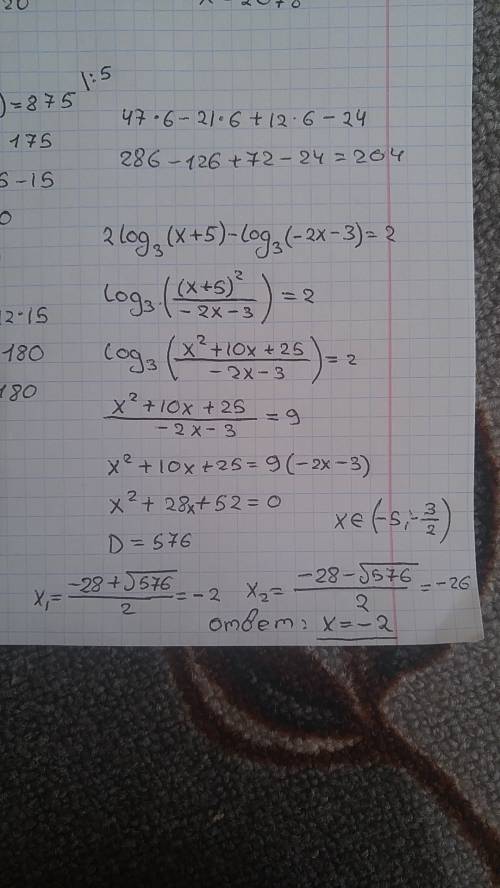 20
) = 875 | : 5
175
6 - 15
0
12 · 15
180
180
47 · 6 - 21 · 6 + 12 · 6 - 24
286 - 126 + 72 - 24 = 204
2 log₃ (x+5) - log₃ (-2x-3) = 2
log₃ ((x+5)² / (-2x-3)) = 2
log₃ ((x² + 10x + 25) / (-2x-3)) = 2
(x² + 10x + 25) / (-2x-3) = 9
x² + 10x + 25 = 9 (-2x-3)
x² + 28x + 52 = 0
x ∈ (-5; -3/2)
D = 576
x₁ = (-28 + √576) / 2 = -2 x₂ = (-28 - √576) / 2 = -26
ответ: x = -2